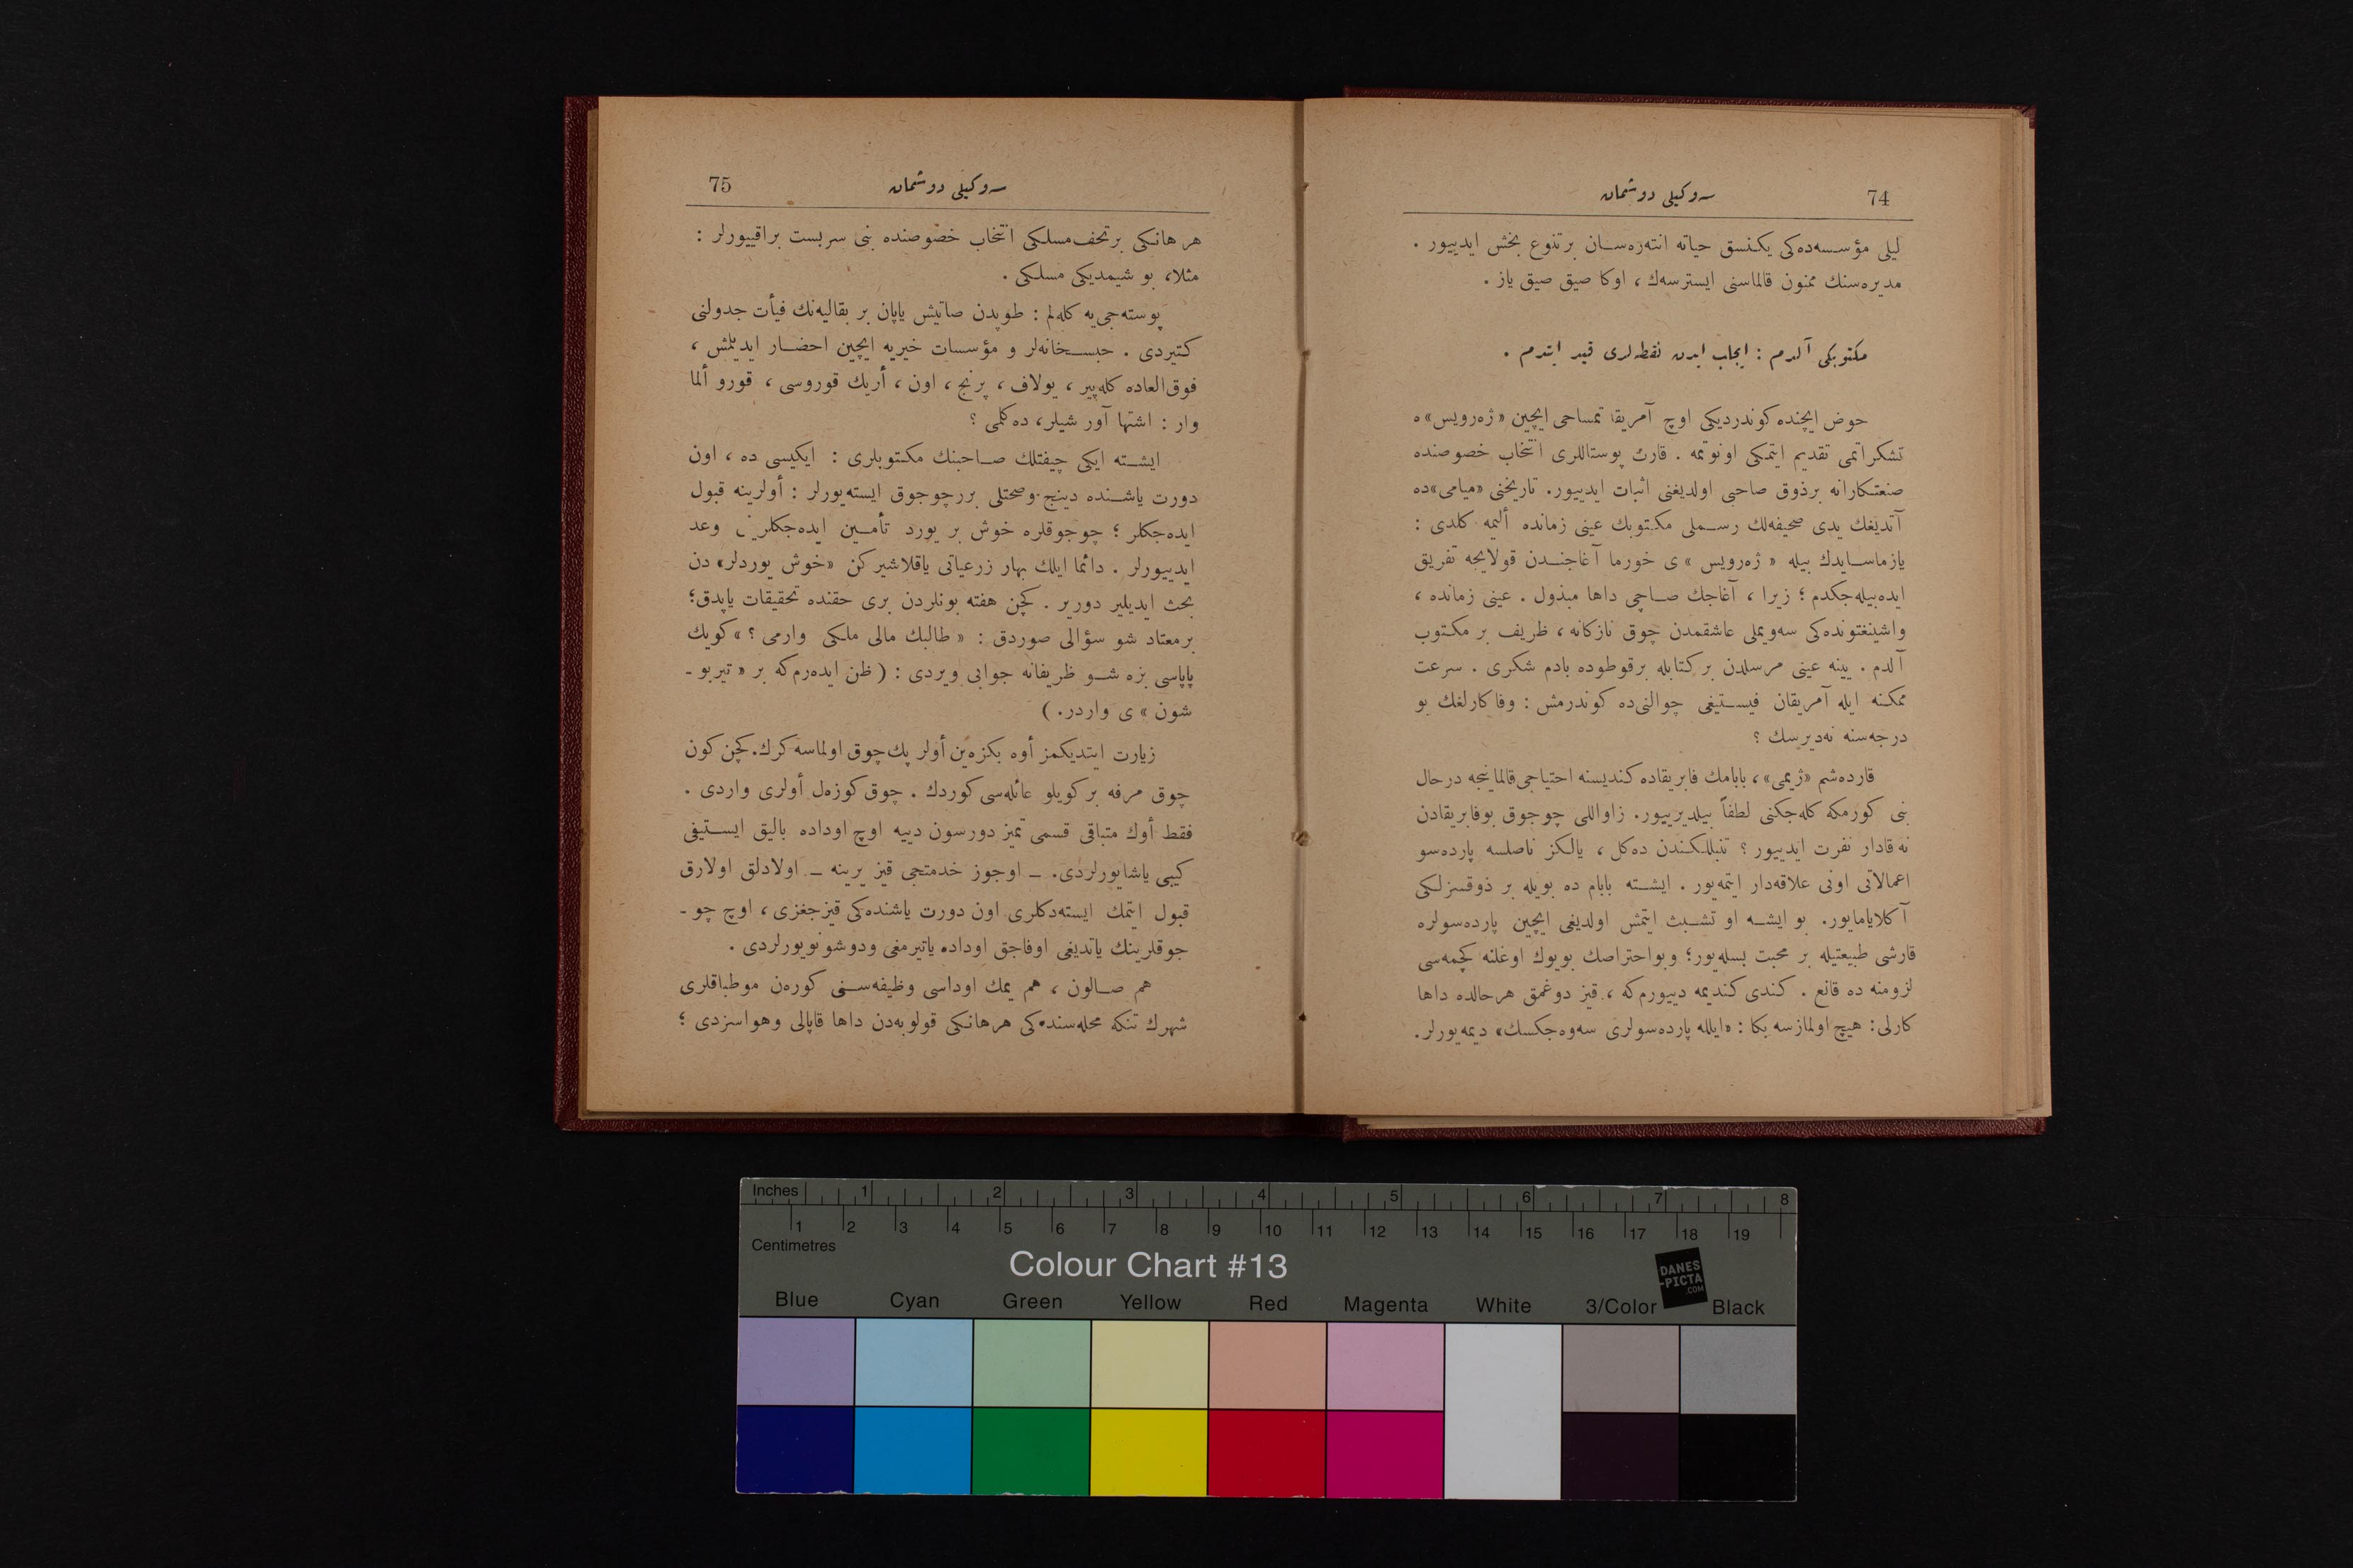 74
سه‌وكیلی دوشمان
لیلی مؤسسه‌ده‌كی یكنسق حیاته انته‌زه‌سان برتنوع بخش ایدییور .
مدیره‌سنك ممنون قالماسنی ایسترسه‌ك ، اوكا صیق صیق یاز .
مكتوبكی آلدم : ایجاب ایدن نقطه‌لری قید ایتدم .
حوض ایچنده كوندردیكی اوچ آمریقا تمساحی ایچین «ژه‌رویس» ه
تشكراتمی تقدیم ایتمكی اونوتمه . قارت پوستاللری انتخاب خصوصنده
صنعتكارانه برذوق صاحبی اولدیغنی اثبات ایدییور. تاریخنی «میامی»ده
آتدیغك یدی صحیفه‌لك رسملی مكتوبك عینی زمانده ألیمه كلدی :
یازماسایدك بیله « ژه‌رویس » ی خورما آغاجندن قولایجه تفریق
ایده‌بیله‌جكدم ؛ زیرا ، آغاجك صاچی داها مبذول . عینی زمانده ،
واشینغتونده‌كی سه‌ویملی عاشقمدن چوق نازكانه ، ظریف بر مكتوب
آلدم . یینه عینی مرسلدن بر كتابله برقوطوده بادم شكری . سرعت
ممكنه ایله آمریقان فیستیغی چوالنی‌ده كوندرمش : وفاكارلغك بو
درجه‌سنه نه‌دیرسك ؟
قارده‌شم «ژیمی» ، بابامك فابریقاده كندیسنه احتیاجی قالماینجه درحال
بنی كورمكه كله‌جكنی لطفاً بیلدیرییور. زاواللی چوجوق بوفابریقادن
نه قادار نفرت ایدییور ؟ تنبللكندن ده‌كل ، یالكز ناصلسه پارده‌سو
اعمالاتی اونی علاقه‌دار ایتمه‌یور . ایشته بابام ده بویله بر ذوقسزلكی
آكلایامایور. بو ایشه او تشبث ایتمش اولدیغی ایچین پارده‌سولره
قارشی طبیعتیله بر محبت بسله‌یور؛ وبواحتراصك بویوك اوغلنه كچمه‌سی
لزومنه ده قانع . كندی كندیمه دییورم كه ، قیز دوغمق هرحالده داها
كارلی: هیچ اولمازسه بكا : «ایلله پارده‌سولری سه‌وه‌جكسك» دیمه‌یورلر.
75
سه‌وكیلی دوشمان
هر هانكی برتحف مسلكی انتخاب خصوصنده بنی سربست براقییورلر :
مثلا، بو شیمدیكی مسلكی .
پوسته‌جی‌یه كله‌لم : طوپدن صاتیش یاپان بر بقالیه‌نك فیأت جدولنی
كتیردی . حبسخانه‌لر و مؤسسات خیریه ایچین احضار ایدیلمش ،
فوق‌العاده كله‌پیر ، یولاف ، پرنج ، اون ، أریك قوروسی ، قورو ألما
وار : اشتها آور شیلر، ده‌كلمی ؟
ایشته ایكی چیفتلك صاحبنك مكتوبلری : ایكیسی ده ، اون
دورت یاشنده دینج وصحتلی بررچوجوق ایسته‌یورلر : أولرینه قبول
ایده‌جكلر ؛ چوجوقلره خوش بر یورد تأمین وعد
ایدییورلر . دائما ایلك بهار زرعیاتی یاقلاشیركن «خوش یوردلر» دن
بحث ایدیلیر دوریر . كچن هفته بونلردن بری حقنده تحقیقات یاپدق؛
برمعتاد شو سؤالی صوردق : « طالبك مالی ملكی وارمی ؟ » كویك
پاپاسی بزه شو ظریفانه جوابی ویردی : ( ظن ایده‌رم كه بر « تیربو ـ
شون » ی واردر. )
زیارت ایتدیكمز أوه بكزه‌ین أولر پك چوق اولماسه كرك. كچن كون
چوق مرفه بر كویلو عائله‌سی كوردك . چوق كوزه‌ل أولری واردی .
فقط أوك متباقی قسمی تمیز دورسون دییه اوچ اوداده بالیق ایستیفی
كیبی یاشایورلردی. ـ اوجوز خدمتجی قیز یرینه ـ اولادلق اولارق
قبول ایتمك ایسته‌دكلری اون دورت یاشنده‌كی قیزجغزی ، اوچ چو ـ
جوقلرینك یاتدیغی اوفاجق اوداده یاتیرمغی ودوشونویورلردی .
هم صالون ، هم یمك اوداسی وظیفه‌سنی كوره‌ن موطباقلری
شهرك تنكه محله‌سنده‌كی هرهانكی قولوبه‌دن داها قاپالی وهواسزدی ؛
Inches 1 2 3 4 5 6 7 8
1 2 3 4 5 6 7 8 9 10 11 12 13 14 15 16 17 18 19
Centimetres
Colour Chart #13
DANES
-PICTA
.COM
Blue Cyan Green Yellow Red Magenta White 3/Color Black